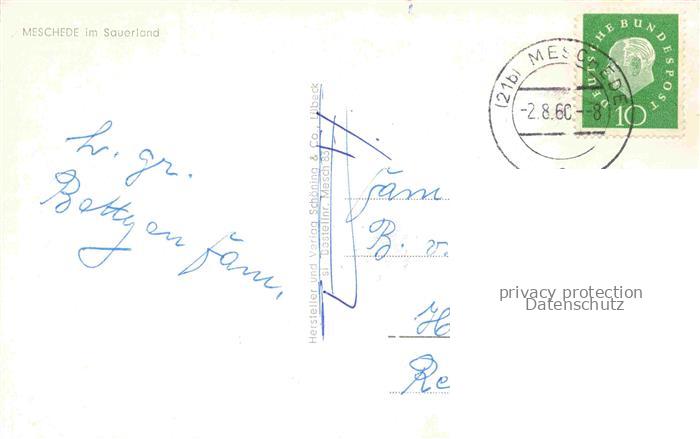 MESCHEDE im Sauerland
DEUTSCHE BUNDESPOST
10
(21b) MESCHEDE
-2.8.60.--8
Hersteller und Verlag Schöning & Co., Lübeck
Bestellnr. Mesch 83
h. gr.
Betty en fam.
fam
B. v.
H
Re
privacy protection
Datenschutz